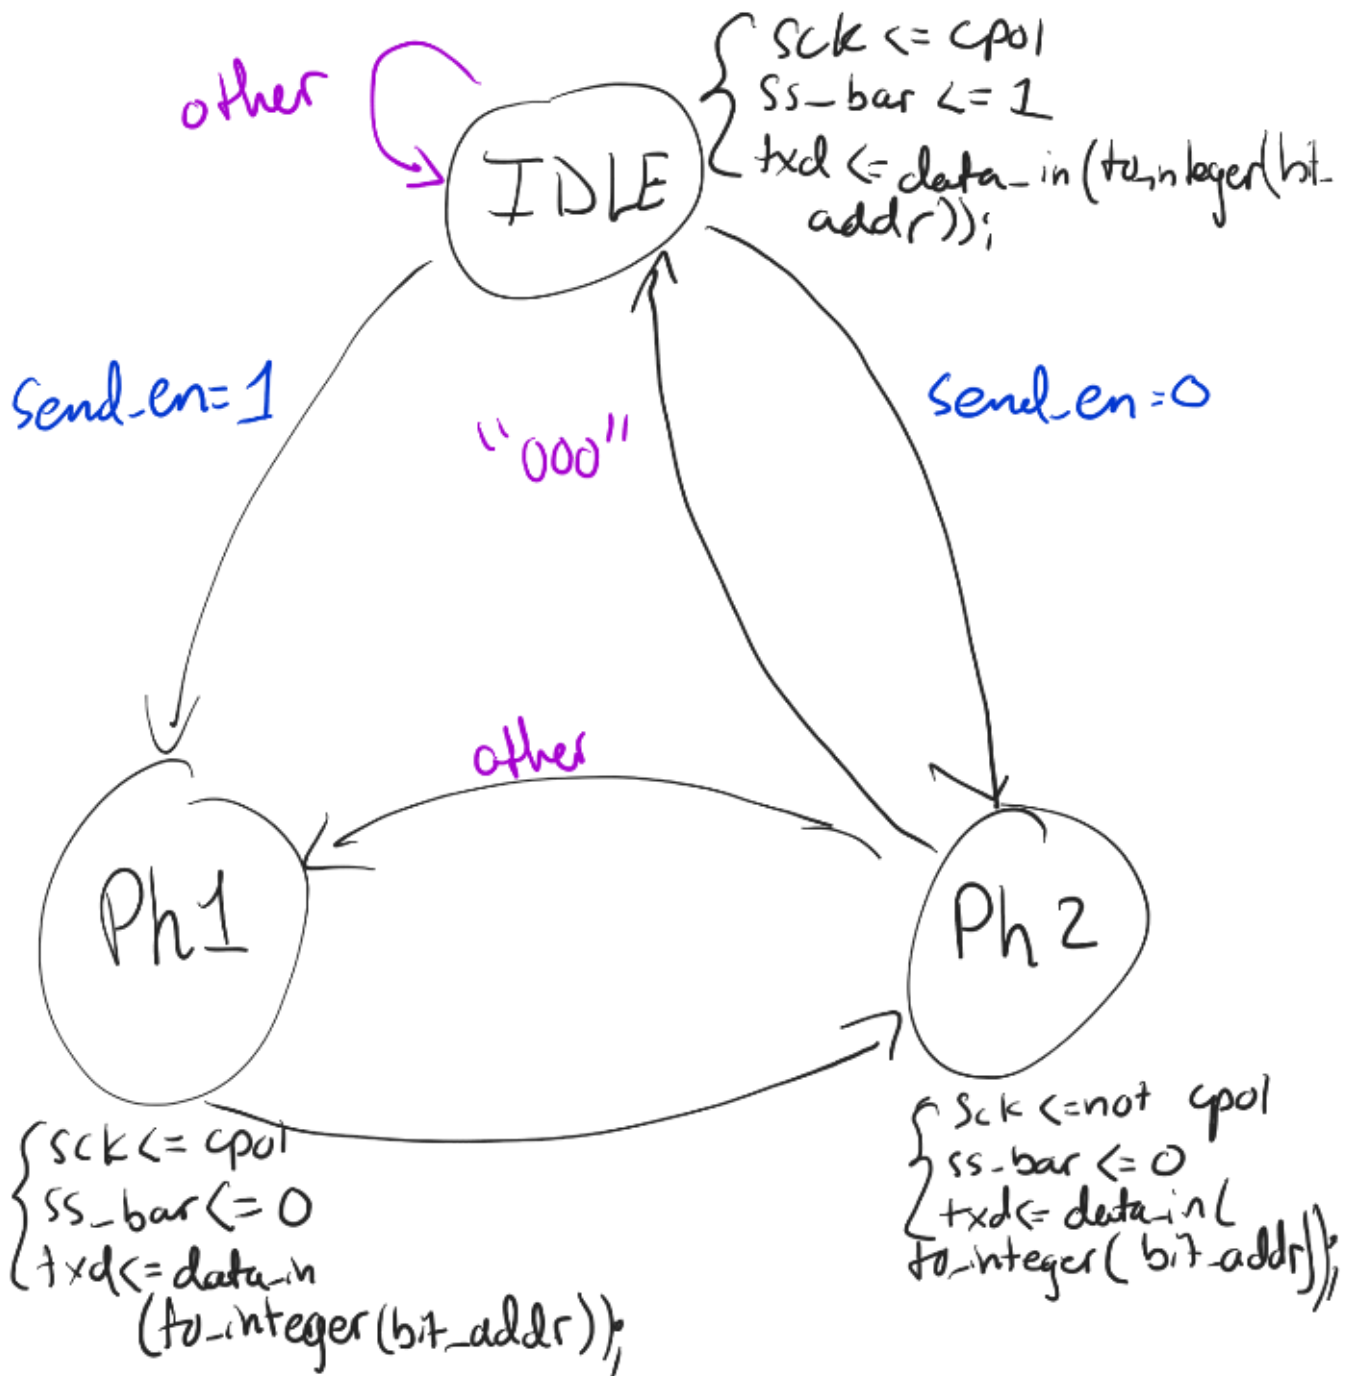 other
sck <= cpol
ss_bar <= 1
txd <= data_in(to_integer(bit_
addr));
IDLE
send_en=1
send_en=0
"000"
other
Ph1
Ph2
sck <= cpol
ss_bar <= 0
txd <= data_in
(to_integer(bit_addr));
sck <= not cpol
ss_bar <= 0
txd <= data_in(
to_integer(bit_addr));